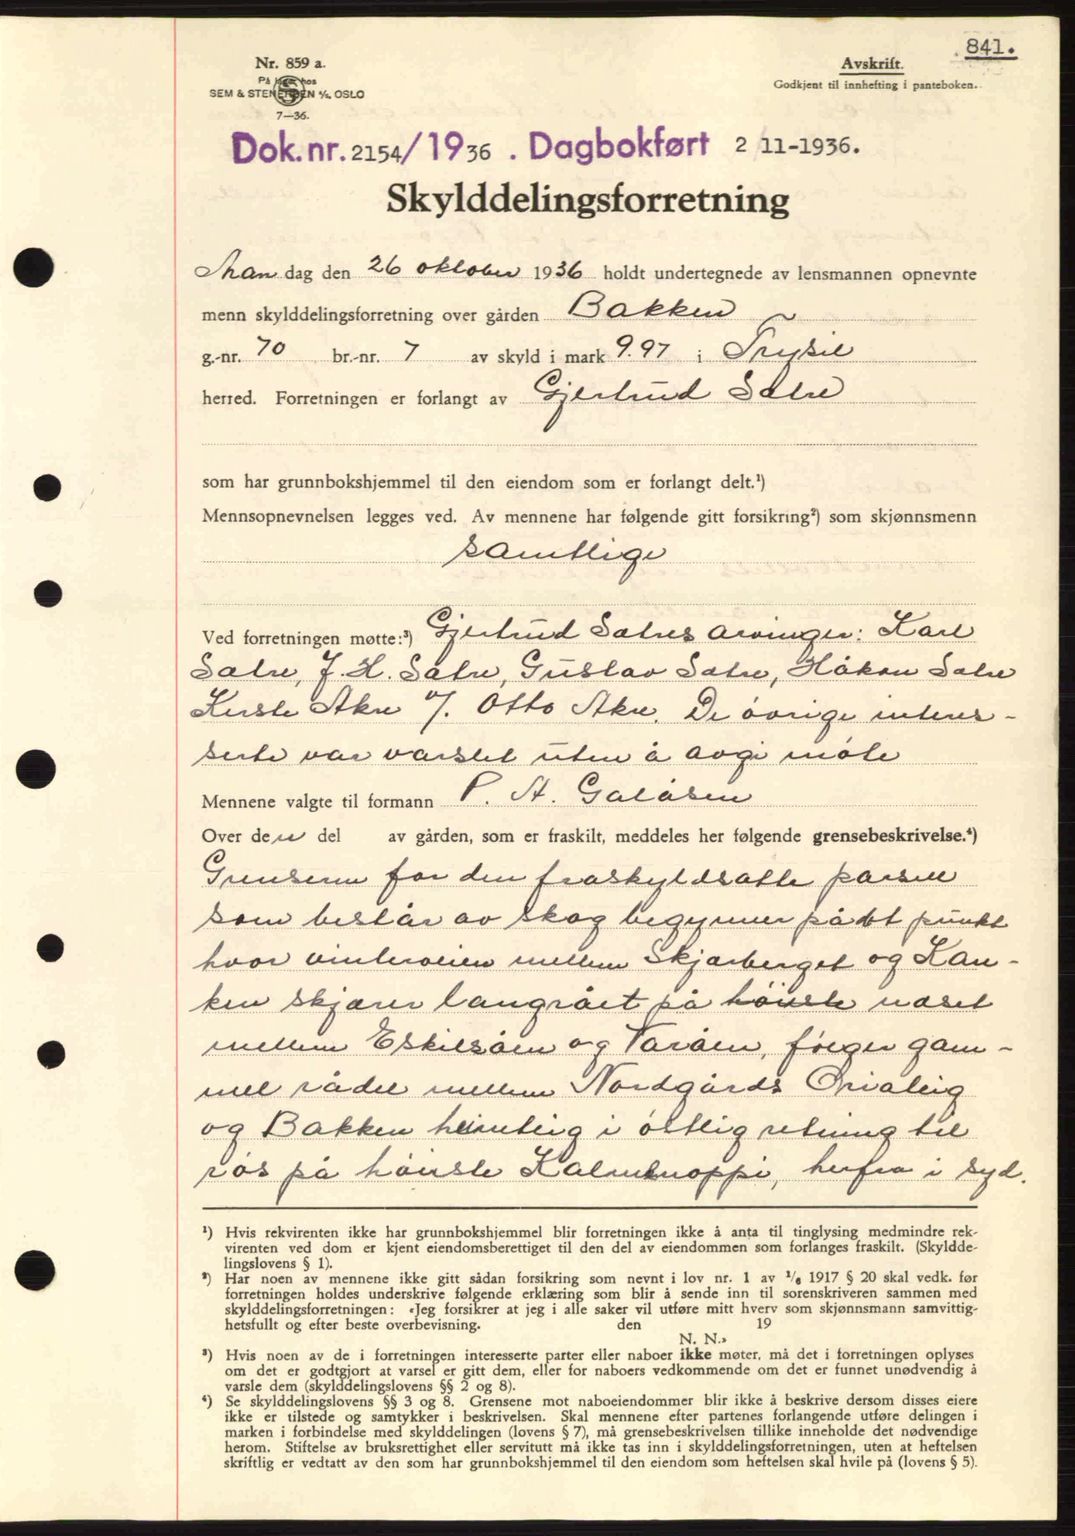 841.
Nr. 859 a.
På lager hos
SEM & STENERSEN A/S, OSLO
7—36.
Avskrift.
Godkjent til innhefting i panteboken.
Dok. nr. 2154/1936 . Dagbokført 2 11-1936.
Skylddelingsforretning
Man dag den 26 oktober 1936 holdt undertegnede av lensmannen opnevnte
menn skylddelingsforretning over gården Bakken
g.-nr. 70 br.-nr. 7 av skyld i mark 9.97 i Trysil
herred. Forretningen er forlangt av Gjertrud Sætre
som har grunnbokshjemmel til den eiendom som er forlangt delt.¹)
Mennsopnevnelsen legges ved. Av mennene har følgende gitt forsikring²) som skjønnsmenn
samtlige
Ved forretningen møtte:³) Gjertrud Sætres arvinger: Karl
Sætre, J. H. Sætre, Gustav Sætre, Håkon Sætre
Kerste Akre v/. Otto Akre. De øvrige interes-
serte var varslet uten å avgi møte
Mennene valgte til formann P. A. Galåsen
Over den del av gården, som er fraskilt, meddeles her følgende grensebeskrivelse.⁴)
Grensene for den fraskyldsatte parsell
som består av skog begynner på et punkt
hvor vinterveien mellem Skjærberget og Kan-
ken skjærer langrået på höiste næset
mellem Eskilsåen og Varåen, følger gam-
mel rådel mellem Nordgårds
og Bakken heimteig i östlig retning til
rös på höiste, herfra i syd.
¹) Hvis rekvirenten ikke har grunnbokshjemmel blir forretningen ikke å anta til tinglysing medmindre rek-
virenten ved dom er kjent eiendomsberettiget til den del av eiendommen som forlanges fraskilt. (Skyldde-
lingslovens § 1).
²) Har noen av mennene ikke gitt sådan forsikring som nevnt i lov nr. 1 av 1/6 1917 § 20 skal vedk. før
forretningen holdes underskrive følgende erklæring som blir å sende inn til sorenskriveren sammen med
skylddelingsforretningen: «Jeg forsikrer at jeg i alle saker vil utføre mitt hverv som skjønnsmann samvittig-
hetsfullt og efter beste overbevisning. den 19
N. N.»
³) Hvis noen av de i forretningen interesserte parter eller naboer ikke møter, må det i forretningen oplyses
om det er godtgjort at varsel er gitt dem, eller for naboers vedkommende om det er funnet unødvendig å
varsle dem (skylddelingslovens §§ 2 og 8).
⁴) Se skylddelingslovens §§ 3 og 8. Grensene mot naboeiendommer blir ikke å beskrive dersom disses eiere
ikke er tilstede og samtykker i beskrivelsen. Skal mennene efter partenes forlangende utføre delingen i
marken i forbindelse med skylddelingen (lovens § 7), må grensebeskrivelsen tillike inneholde det nødvendige
herom. Stiftelse av bruksrettighet eller servitutt må ikke tas inn i skylddelingsforretningen, uten at heftelsen
skriftlig er vedtatt av den som har grunnbokshjemmel til den eiendom som heftelsen skal hvile på (lovens § 5).